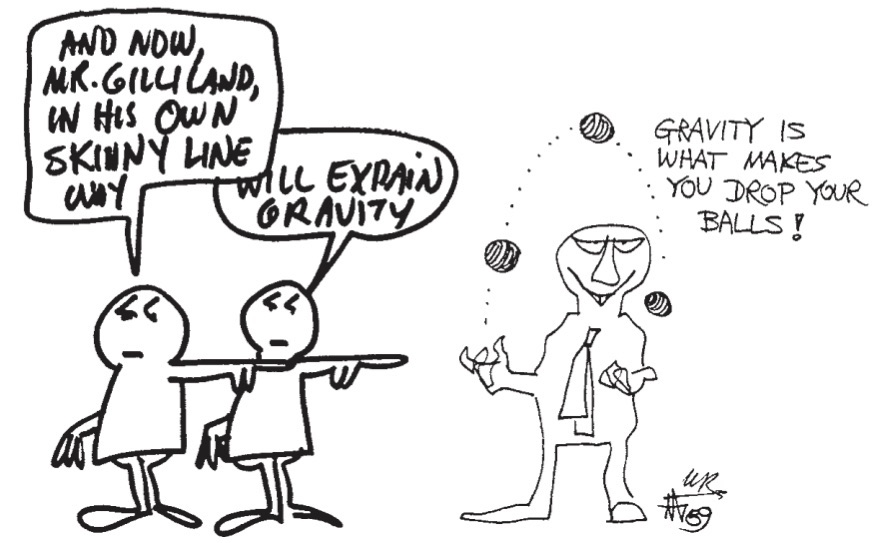 AND NOW,
MR. GILLILAND,
IN HIS OWN
SKINNY LINE
WAY
WILL EXPAIN
GRAVITY
GRAVITY IS
WHAT MAKES
YOU DROP YOUR
BALLS!